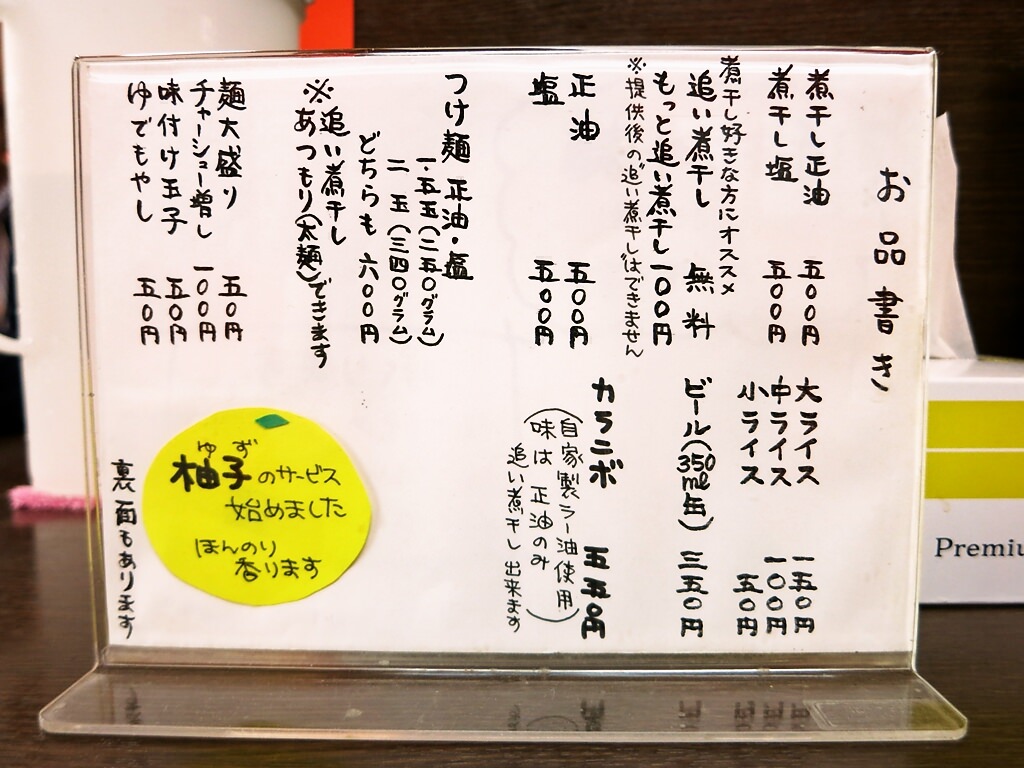 お品書き
煮干し正油 五〇〇円
煮干し塩 五〇〇円
煮干し好きな方にオススメ
追い煮干し 無料
もっと追い煮干し 一〇〇円
※提供後の“追い煮干し”はできません
正油 五〇〇円
塩 五〇〇円
つけ麺 正油・塩
一.五玉(二五〇グラム)
二 玉(三四〇グラム)
どちらも 六〇〇円
※追い煮干し
あつもり(太麺)できます
麺大盛り 五〇円
チャーシュー増し 一〇〇円
味付け玉子 五〇円
ゆでもやし 五〇円
大ライス 一五〇円
中ライス 一〇〇円
小ライス 五〇円
ビール(350ml缶) 三五〇円
カラニボ 五五〇円
(自家製ラー油使用
味は 正油のみ)
追い煮干し出来ます
ゆず
柚子のサービス
始めました
ほんのり
香ります
裏面もあります
Premiu